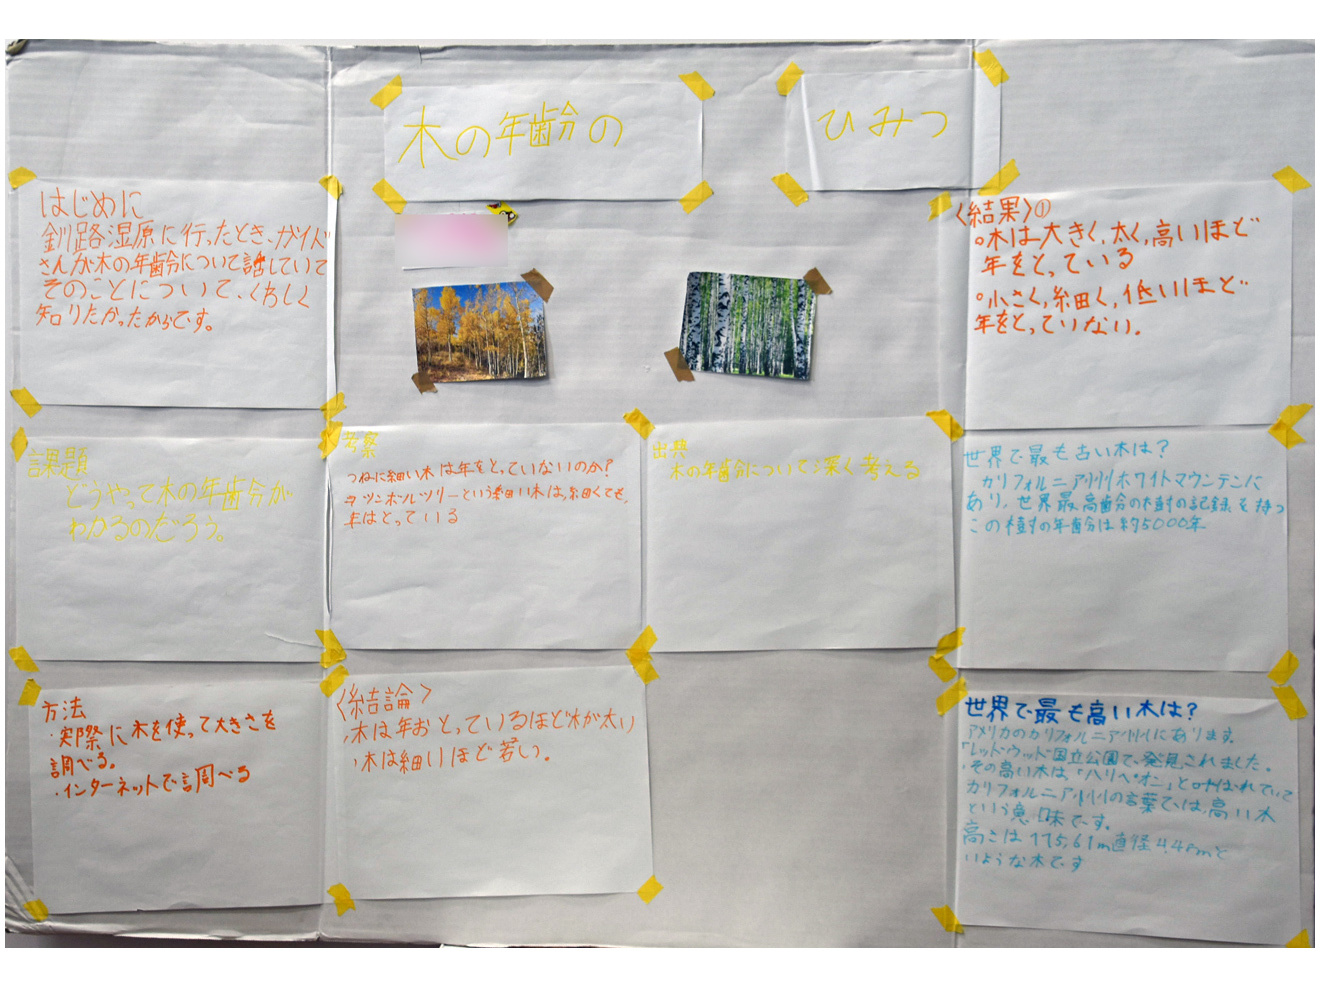 木の年齢の
ひみつ
はじめに
釧路湿原に行ったとき、ガイド
さんが木の年齢について話していて
そのことについて、くわしく
知りたかったからです。
課題
どうやって木の年齢が
わかるのだろう。
方法
・実際に木を使って大きさを
調べる。
・インターネットで調べる
考察
つねに細い木は年をとっていないのか?
という細い木は、細くても、
年はとっている
〈結論〉
・木は年おとっているほど木が太い
・木は細いほど若い。
出典
木の年齢について深く考える
〈結果〉①
○木は大きく、太く、高いほど
年をとっている
○小さく、細く、低いほど
年をとっていない。
世界で最も古い木は?
カリフォルニア州ホワイトマウンテンに
あり、世界最高齢の樹の記録を持つ
この樹の年齢は約5000年
世界で最も高い木は?
アメリカのカリフォルニア州にあります。
「レッドウッド国立公園で発見されました。
・その高い木は、「ハリペオン」と呼ばれていて
カリフォルニア州の言葉では、高い木
という意味です。
高さは115,61m直径4.48mと
いような木です